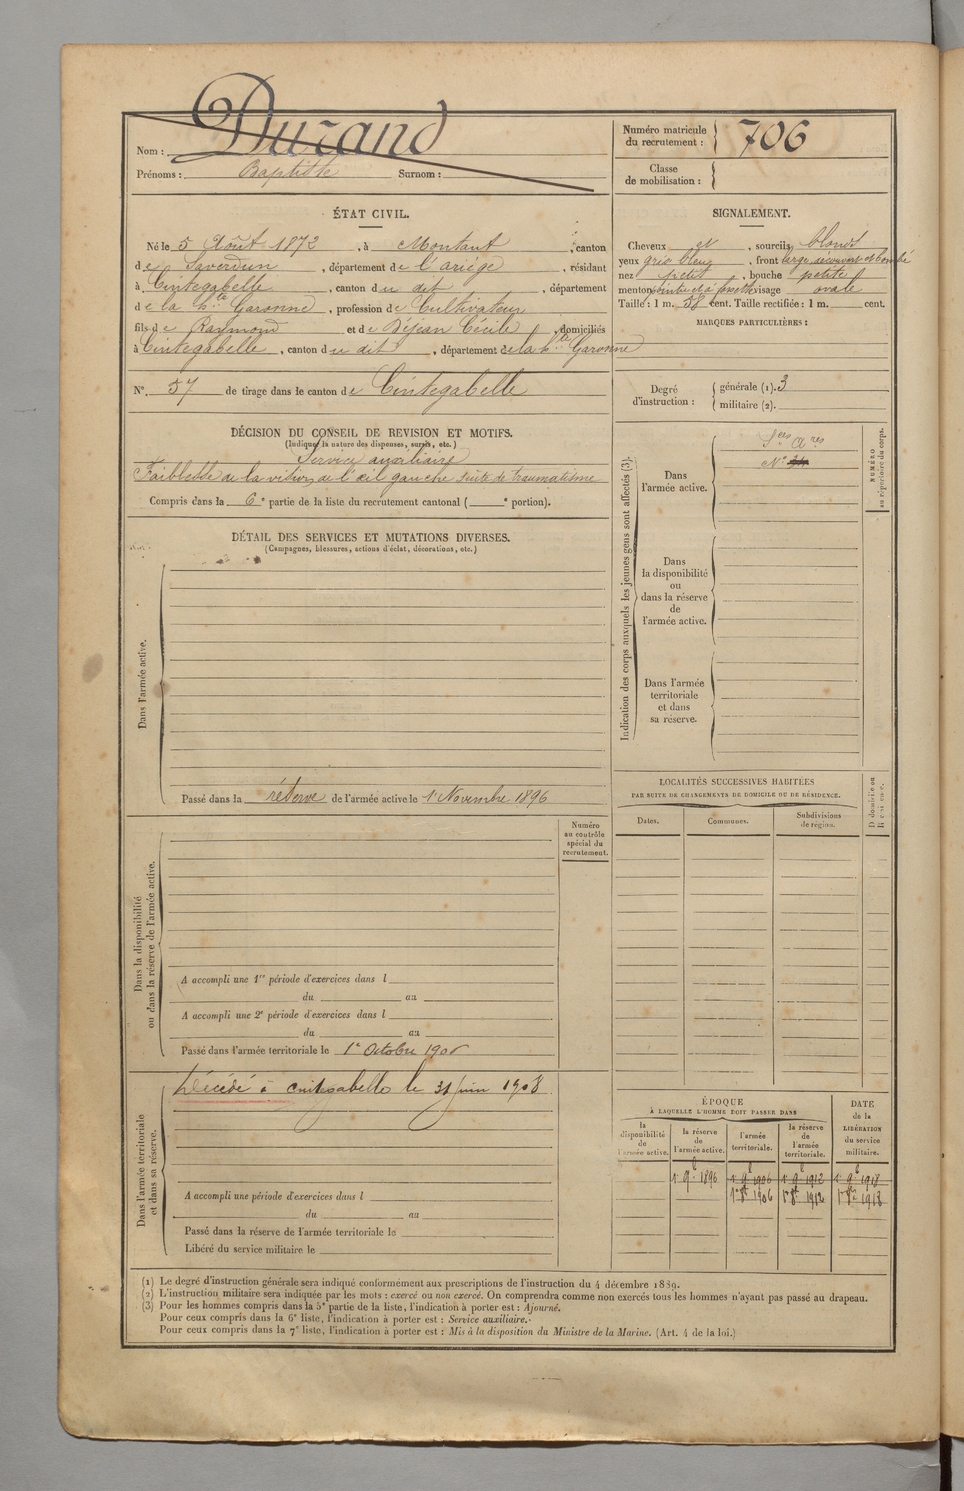 Nom : Durand
Prénoms : Baptiste Surnom :
Numéro matricule du recrutement : 706
Classe de mobilisation :
ÉTAT CIVIL.
Né le 5 Août 1872, à Montaut, canton
de Saverdun, département de l'ariège, résidant
à Cintegabelle, canton du dit, département
de la hte Garonne, profession de Cultivateur
fils de Raymond et de Déjean Cécile, domiciliés
à Cintegabelle, canton du dit, département de la hte Garonne
No. 57 de tirage dans le canton de Cintegabelle
SIGNALEMENT.
Cheveux et, sourcils blonds
yeux gris bleu, front large, découvert et bombé
nez petit, bouche petite
menton pointu et à fossette visage ovale
Taille : 1 m. 58 cent. Taille rectifiée : 1 m. cent.
MARQUES PARTICULIÈRES :
Degré d'instruction : générale (1). 3
militaire (2).
DÉCISION DU CONSEIL DE REVISION ET MOTIFS.
(Indiquer la nature des dispenses, sursis, etc.)
Service auxiliaire
Faiblesse de la vision de l'œil gauche suite de traumatisme
Compris dans la 6e partie de la liste du recrutement cantonal ( e portion).
DÉTAIL DES SERVICES ET MUTATIONS DIVERSES.
(Campagnes, blessures, actions d'éclat, décorations, etc.)
Dans l'armée active.
Passé dans la réserve de l'armée active le 1er Novembre 1896
Dans la disponibilité
ou dans la réserve de l'armée active.
Numéro
au contrôle
spécial du
recrutement.
A accompli une 1re période d'exercices dans l
du au
A accompli une 2e période d'exercices dans l
du au
Passé dans l'armée territoriale le 1er Octobre 1906
Dans l'armée territoriale
et dans sa réserve.
Décédé à Cintegabelle le 31 juin 1908
A accompli une période d'exercices dans l
du au
Passé dans la réserve de l'armée territoriale le
Libéré du service militaire le
Indication des corps auxquels les jeunes gens sont affectés (3).
NUMÉRO
au répertoire du corps.
Dans
l'armée active.
Sces Ares
No
Dans
la disponibilité
ou
dans la réserve
de
l'armée active.
Dans l'armée
territoriale
et dans
sa réserve.
LOCALITÉS SUCCESSIVES HABITÉES
PAR SUITE DE CHANGEMENTS DE DOMICILE OU DE RÉSIDENCE.
Dates.
Communes.
Subdivisions
de région.
D. domicile ou
R. résidence.
ÉPOQUE
À LAQUELLE L'HOMME DOIT PASSER DANS
DATE
de la
LIBÉRATION
du service
militaire.
la
disponibilité
de
l'armée active.
la réserve
de
l'armée active.
l'armée
territoriale.
la réserve
de
l'armée
territoriale.
1er 9bre 1896 1er 9bre 1906 1er 9bre 1912 1er 9bre 1918
1er 8bre 1906 1er 8bre 1912 1er 8bre 1918
(1) Le degré d'instruction générale sera indiqué conformément aux prescriptions de l'instruction du 4 décembre 1889.
(2) L'instruction militaire sera indiquée par les mots : exercé ou non exercé. On comprendra comme non exercés tous les hommes n'ayant pas passé au drapeau.
(3) Pour les hommes compris dans la 5e partie de la liste, l'indication à porter est : Ajourné.
Pour ceux compris dans la 6e liste, l'indication à porter est : Service auxiliaire.
Pour ceux compris dans la 7e liste, l'indication à porter est : Mis à la disposition du Ministre de la Marine. (Art. 4 de la loi.)